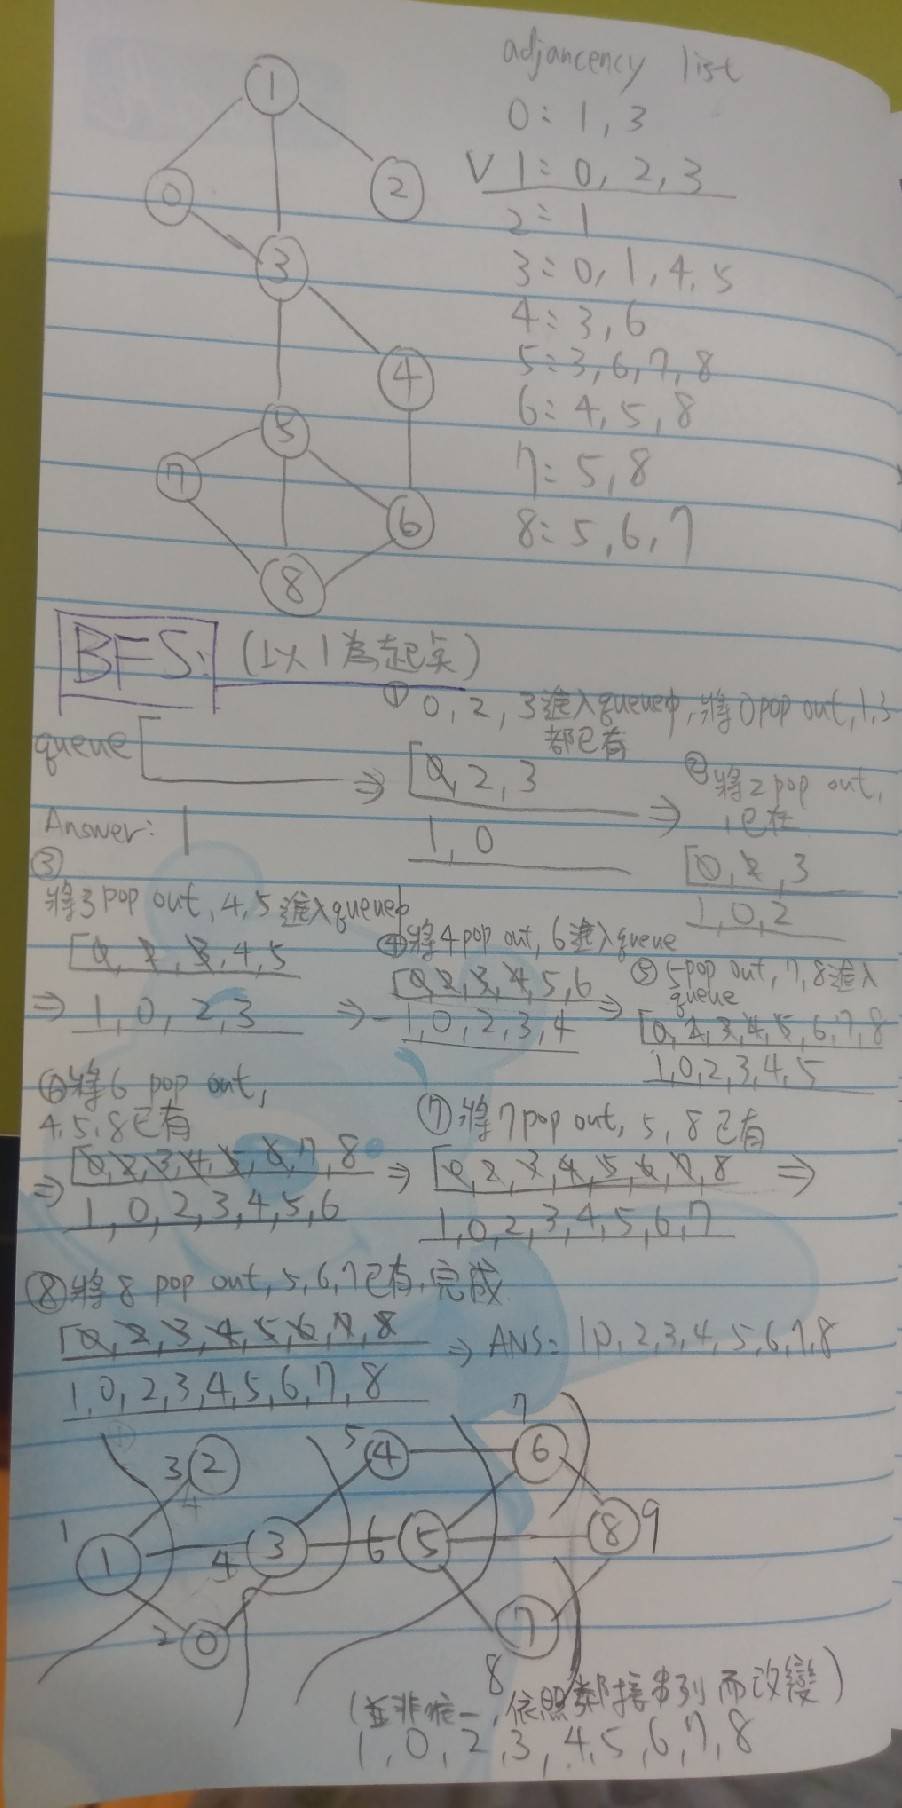 adjancency list
0: 1, 3
V 1: 0, 2, 3
2: 1
3: 0, 1, 4, 5
4: 3, 6
5: 3, 6, 7, 8
6: 4, 5, 8
7: 5, 8
8: 5, 6, 7
1
0
2
3
4
5
7
6
8
BFS: (以1為起點)
① 0, 2, 3進入queue中, 將0 pop out, 1, 3
都已有
queue
[0, 2, 3
Answer: 1
1, 0
②將2 pop out,
1已在
[0, 2, 3
1, 0, 2
③
將3 pop out, 4, 5進入queue中
[0, 2, 3, 4, 5
⇒ 1, 0, 2, 3
④將4 pop out, 6進入queue
[0, 2, 3, 4, 5, 6
⇒ 1, 0, 2, 3, 4
⑤ 5 pop out, 7, 8進入
queue
[0, 2, 3, 4, 5, 6, 7, 8
1, 0, 2, 3, 4, 5
⑥將6 pop out,
4, 5, 8已有
⇒ [0, 2, 3, 4, 5, 6, 7, 8
1, 0, 2, 3, 4, 5, 6
⑦將7 pop out, 5, 8已有
⇒ [0, 2, 3, 4, 5, 6, 7, 8 ⇒
1, 0, 2, 3, 4, 5, 6, 7
⑧將8 pop out, 5, 6, 7已有, 完成
[0, 2, 3, 4, 5, 6, 7, 8 ⇒ ANS: 1, 0, 2, 3, 4, 5, 6, 7, 8
1, 0, 2, 3, 4, 5, 6, 7, 8
3 2
5 4
7 6
1 1
4 3
6 5
8 9
2 0
7 8
(並非唯一, 依照鄰接串列而改變)
1, 0, 2, 3, 4, 5, 6, 7, 8